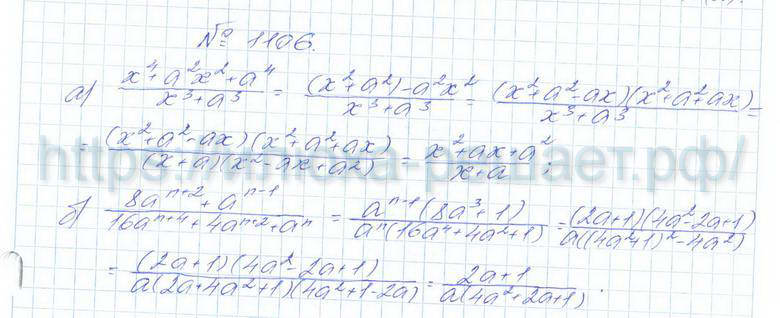 № 1106.
а) (x⁴+a²x²+a⁴)/(x³+a³) = ((x²+a²)-a²x²)/(x³+a³) = ((x²+a²-ax)(x²+a²+ax))/(x³+a³) =
= ((x²+a²-ax)(x²+a²+ax))/((x+a)(x²-ax+a2)) = (x²+ax+a²)/(x+a);
б) (8aⁿ⁺²+aⁿ⁻¹)/(16aⁿ⁺⁴+4aⁿ⁺²+aⁿ) = (aⁿ⁻¹(8a³+1))/(aⁿ(16a⁴+4a²+1)) = ((2a+1)(4a²-2a+1))/(a((4a²+1)²-4a²)
= ((2a+1)(4a²-2a+1))/(a(2a+4a²+1)(4a²+1-2a)) = (2a+1)/(a(4a²+2a+1)).